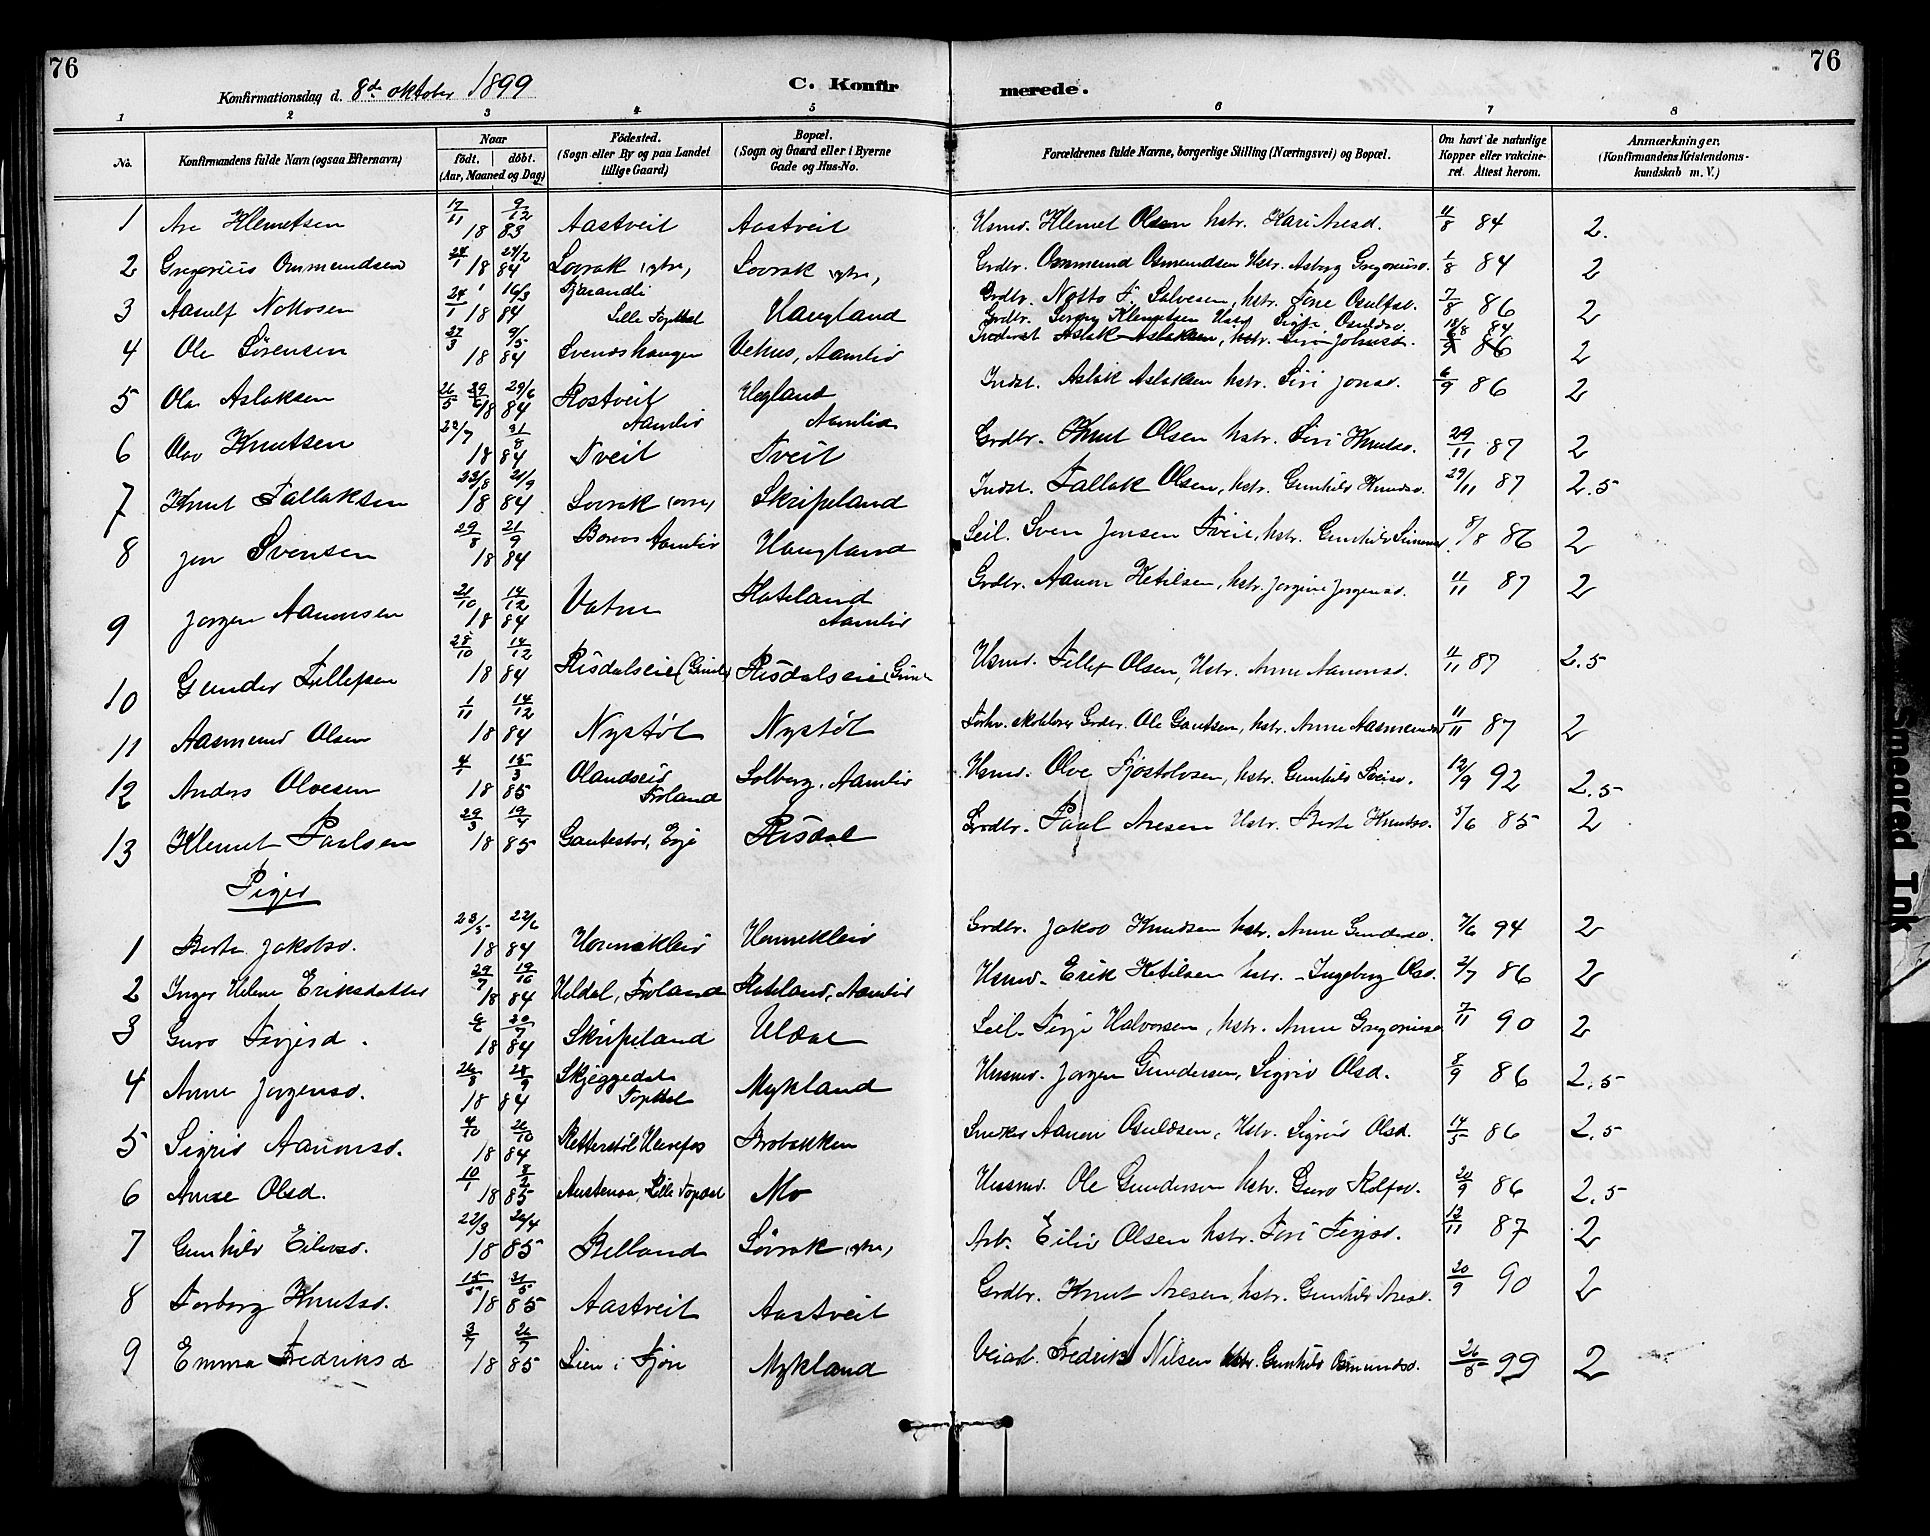 76
76
Konfirmationsdag d. 8de oktober 1899
C. Konfirmerede.
1 2 3 4 5 6 7 8
No. Konfirmandens fulde Navn (ogsaa Efternavn) Naar født. døbt. (Aar, Maaned og Dag) Födested. (Sogn eller By og paa Landet tillige Gaard) Bopæl. (Sogn og Gaard eller i Byerne Gade og Hus-No. Forældrenes fulde Navne, borgerlige Stilling (Næringsvei) og Bopæl. Om havt de naturlige Kopper eller vakcineret. Attest herom. Anmærkninger. (Konfirmandens Kristendomskundskab m. V.)
1 Are Klemetsen 17/11 9/12 18 83 Aastveit Aastveit Usmd. Klemet Olsen hstr. Kari Aresd. 11/8 84 2.
2 Gregorius Ommundsen 24/1 24/2 18 84 Lovrak (ytre) Lovrak (ytre) Grdbr. Ommund Osmundsen Hstr. Asborg Gregoriusd. 1/8 84 2
3 Aasulf Nottosen 24/1 16/3 18 84 Lille Topdal Haugland Grdbr. Notto T. Salvesen, hstr. Tone Osulfsd. 7/8 86 2
4 Ole Sørensen 27/3 9/5 18 84 Svendshaugen Vehus, Aamlid Grdbr. Klemetsen 18/8 84 2
Inderst Aslak Aslaksen, hstr. Siri Johnsd. 6/9 86
5 Ola Aslaksen 26/5 29/6 29/6 18 84 Rostveit Aamlid Hegland Aamlid Indst. Aslak Aslaksen hstr. Siri Jonsd. 6/9 86 2
6 Olav Knutsen 22/7 31/8 18 84 Tveit Tveit Grdbr. Knut Olsen hstr. Siri Knutsd. 29/11 87 2
7 Knut Tallaksen 23/8 21/9 18 84 Lovrak (ovre) Skripeland Indst. Tallak Olsen, hstr. Gunhild Knudsd. 29/11 87 2.5
8 Jon Svensen 29/8 21/9 18 84 Boraas Aamlid Haugland Seil. Sven Jonsen Tveit, hstr. Gunhild 5/8 86 2
9 Jorgen Aanonsen 21/10 14/12 18 84 Vatne Hateland Aamlid Grdbr. Aanon Ketilsen, hstr. Jorgine Jorgensd. 11/11 87 2
10 Gunder Tellefsen 28/10 14/12 18 84 Risdalseie (Gimle) Risdalseie (Gimle Usmd. Tellef Olsen, Hstr. Anne Aanonsd. 11/11 87 2.5
11 Aasmund Olsen 1/11 14/12 18 84 Nystøl Nystøl Forhv. skolelærer Grdbr. Ole Gautsen, hstr. Anne Aasmundsd 11/11 87 2
12 Anders Olvesen 4/1 15/3 18 85 Olandseid Froland Solberg, Aamlid Usmd. Olve Fjøstolvsen, hstr. Gunhild 12/9 92 2.5
13 Klemet Paulsen 29/3 19/4 18 85 Gautestad, Evje Risdal Grdbr. Paul Aresen Hstr. Berte Knutsd. 5/6 85 2
Piger
1 Berte Jakobsd. 23/5 22/6 18 84 Hennekleiv Hennekleiv Grdbr. Jakob Knudsen hstr. Anne Gundersd. 7/6 94 2
2 Inger Helene Eriksdatter 29/7 19/10 18 84 Heldal, Froland Hateland, Aamlid Usmd. Erik Ketilsen hstr. Ingeborg Olsd. 2/7 86 2
3 Guro Terjesd. 6/6 20/7 18 84 Skripeland Uldal Seil. Terje Halvorsen, hstr. Anne Gregoriusd 7/11 90 2
4 Anne Jorgensd. 26/8 28/9 18 84 Skjeggedal Topdal Mykland Husmd. Jorgen Gundersen, Sigrid Olsd. 8/9 86 2.5
5 Sigrid Aanonsd. 4/10 26/10 18 84 Retterstøl Herefos Brobakken Snedker Aanon Osuldsen, Hstr. Sigrid Olsd. 14/5 86 2.5
6 Anne Olsd. 10/1 8/2 18 85 Austenaa, Lille Topdal Mo Husmd. Ole Gundersen hstr. Guro Rolfsd. 20/9 86 2.5
7 Gunhild Eilivsd. 22/3 26/4 18 85 Relland Lovrak (ytre) Arb. Eiliv Olsen hstr. Turi Terjesd. 13/11 87 2
8 Torborg Knutsd. 15/5 31/5 18 85 Aastveit Aastveit Grdbr. Knut Aresen, hstr. Gunhild Aresd. 20/9 90 2
9 Emma Fredriksd 3/7 26/7 18 85 Lien i Fjøn Mykland Veiarb. Fredrik Nilsen hstr. Gunhild Osmundsd. 26/5 99 2
Smeared Ink